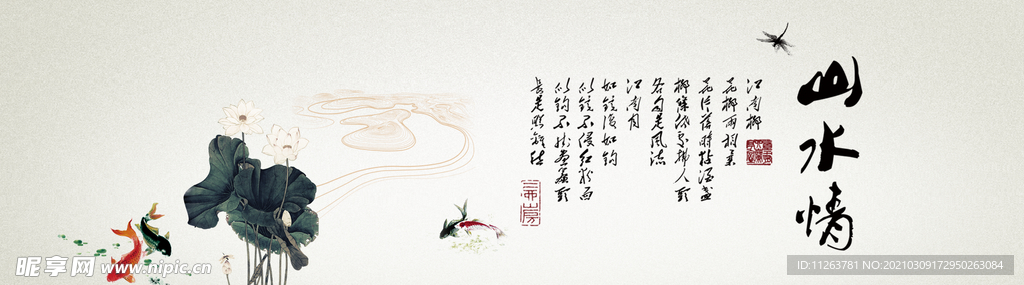 山水情
江南柳
花柳两相柔
花片落时粘酒盏
柳条低处拂人头
各自是风流
江南月
如镜复如钩
似镜不侵红粉面
似钩不挂画帘头
长是照离愁
昵享网 www.nipic.cn
ID:11263781 NO:20210309172950263084